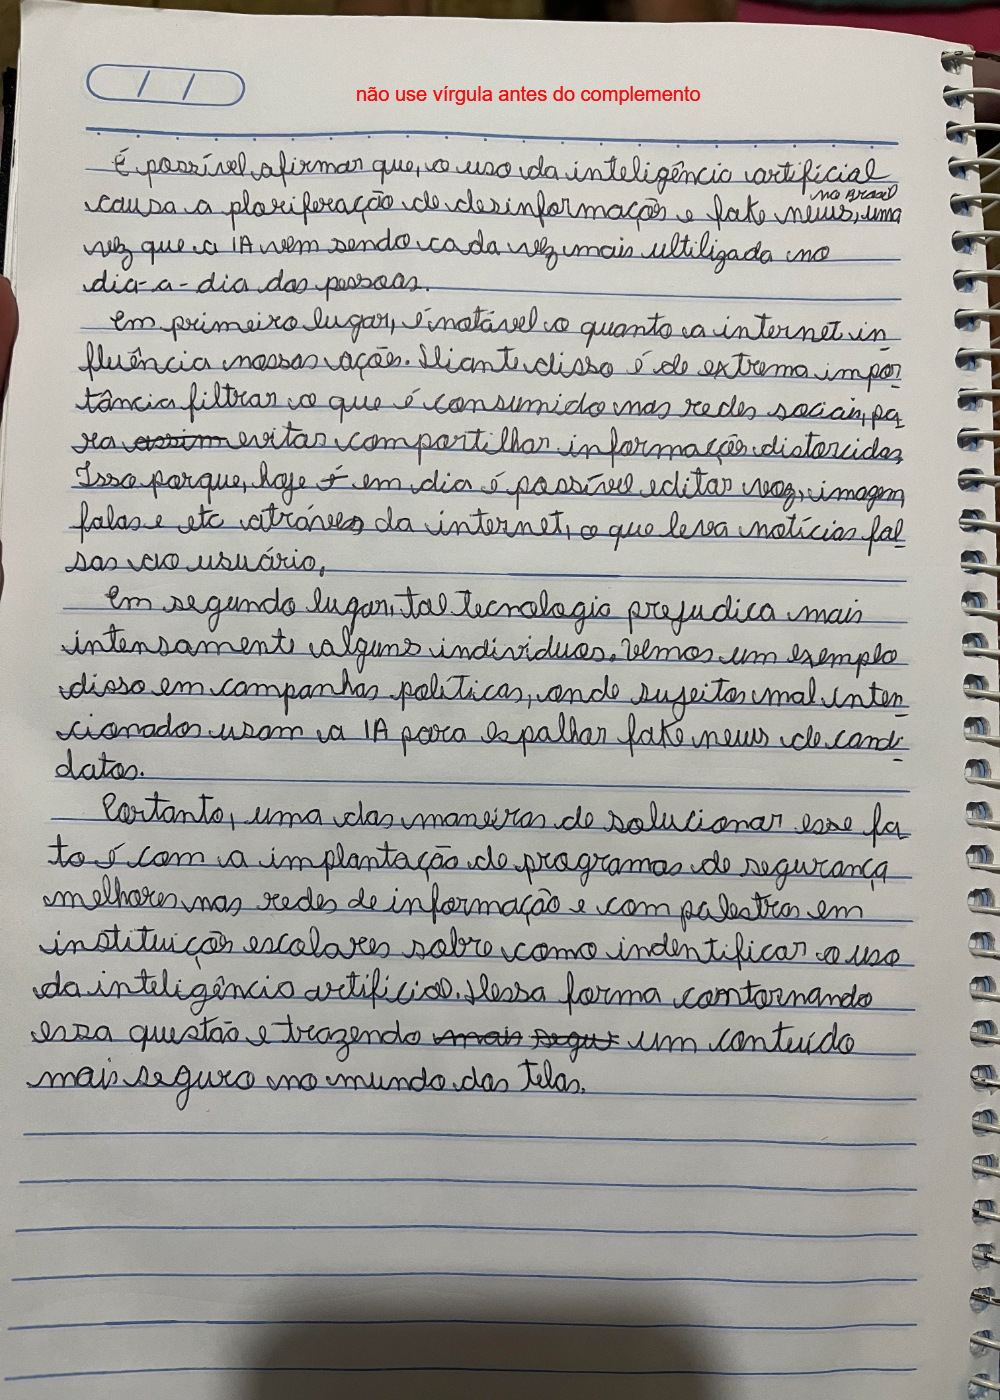 não use vírgula antes do complemento
É possível afirmar que, o uso da inteligência artificial
no Brasil
causa a ploriferação de desinformações e fake news, uma
vez que a IA vem sendo cada vez mais ultilizada no
dia-a-dia das pessoas.
Em primeiro lugar, é notável o quanto a internet in
fluência nossas ações. Diante disso é de extrema impor
tância filtrar o que é consumido nas redes sociais, pa
ra assim evitar compartilhar informações distorcidas,
Isso porque, hoje é em dia é possível editar voz, imagem,
falas e etc atráves da internet, o que leva notícias fal
sas ao usuário,
Em segundo lugar, tal tecnologia prejudica mais
intensamente alguns individuos. Vemos um exemplo
disso em campanhas políticas, onde sujeitos mal inten
cionados usam a IA para espalhar fake news de candi
datos.
Portanto, uma das maneiras de solucionar esse fa
to é com a implantação de programas de segurança
melhores nas redes de informação e com palestras em
instituições escolares sobre como indentificar o uso
da inteligência artificial. Dessa forma contornando
essa questão e trazendo mais segur um conteúdo
mais seguro no mundo das telas.